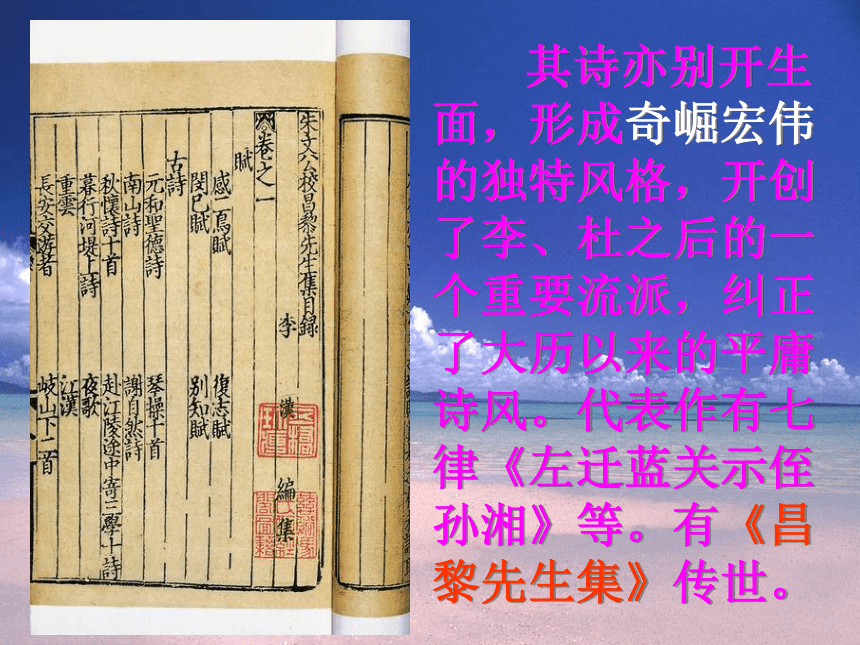 朱文公校昌黎先生集目録
李 漢 編集
卷之一
賦
感二鳥賦 復志賦
閔己賦 别知賦
古詩
元和聖德詩 琴操十首
南山詩 謝自然詩
秋懷詩十首 赴江陵途中寄三學士詩
暮行河堤上詩 夜歌
重雲 江漢
長安交遊者 岐山下二首
其诗亦别开生
面，形成奇崛宏伟
的独特风格，开创
了李、杜之后的一
个重要流派，纠正
了大历以来的平庸
诗风。代表作有七
律《左迁蓝关示侄
孙湘》等。有《昌
黎先生集》传世。